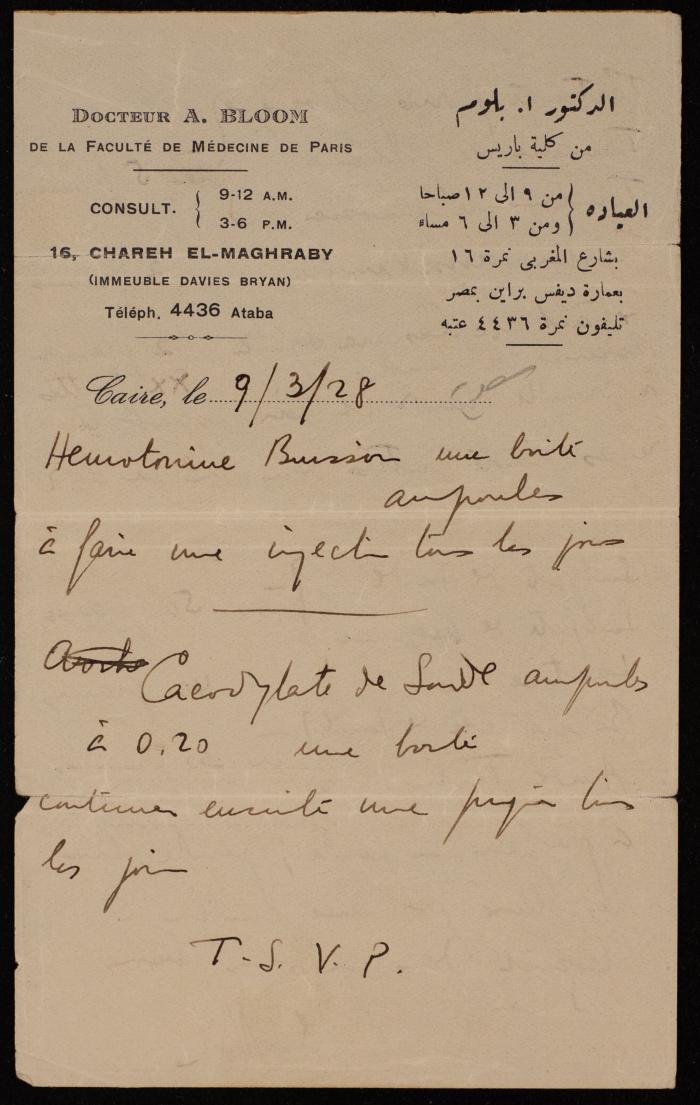 DOCTEUR A. BLOOM
DE LA FACULTÉ DE MÉDECINE DE PARIS
CONSULT. { 9-12 A.M.
3-6 P.M.
16, CHAREH EL-MAGHRABY
(IMMEUBLE DAVIES BRYAN)
Téléph. 4436 Ataba
الدكتور ا. بلوم
من كلية باريس
العياده { من ٩ الى ١٢ صباحا
ومن ٣ الى ٦ مساء
بشارع المغربى نمرة ١٦
بعمارة ديفس براين بمصر
تليفون نمرة ٤٤٣٦ عتبه
Caire, le 9/3/28
Hemotonine Buisson une boite
ampoules
à faire une injection tous les jours
Cacodylate de Soude ampoules
à 0,20 une boite
continuer ensuite une piqûre tous
les jours
T.S.V.P.